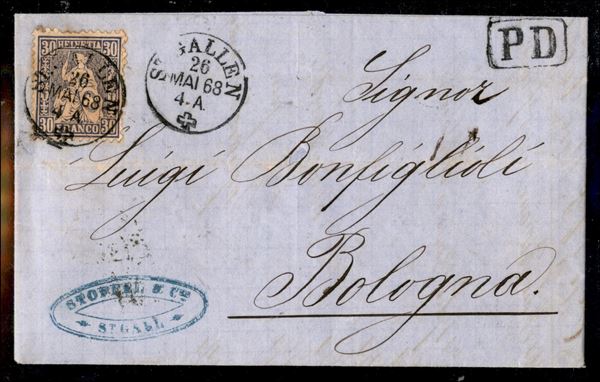 30 HELVETIA 30
30 FRANCO 30
ST GALLEN
26
MAI 68
4-A.
ST GALLEN
26
MAI 68
4-A.
PD
Signor
Luigi Bonfiglioli
Bologna.
& Cie
ST GALL